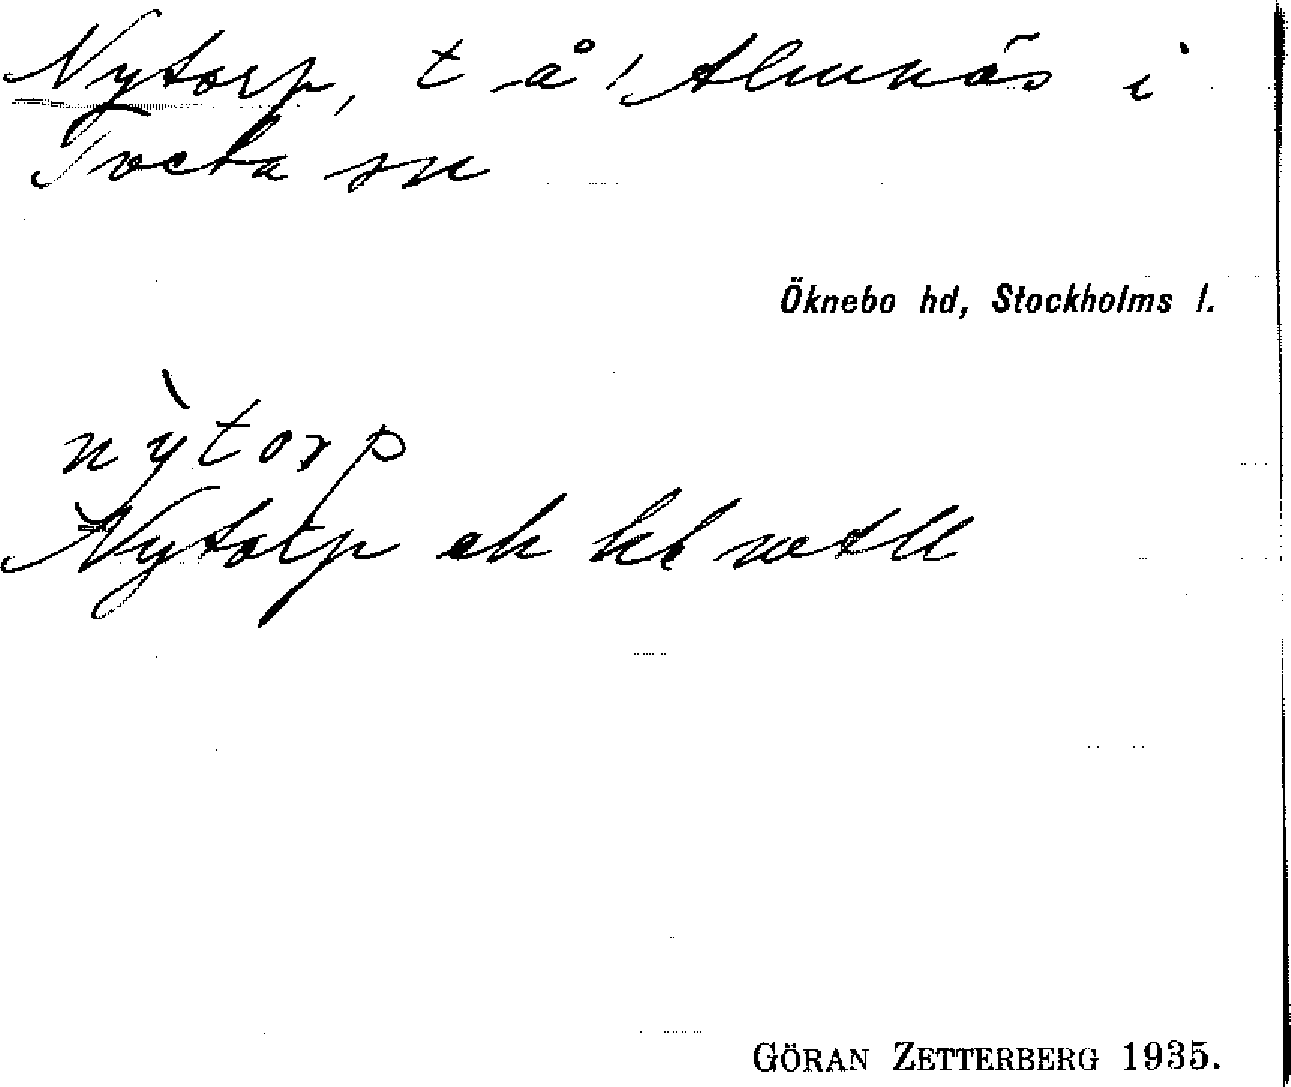 Nytorp, t å Almnäs i
Tveta sn
Öknebo hd, Stockholms l.
nỳtorp
Nytorp ek kt
GÖRAN ZETTERBERG 1935.